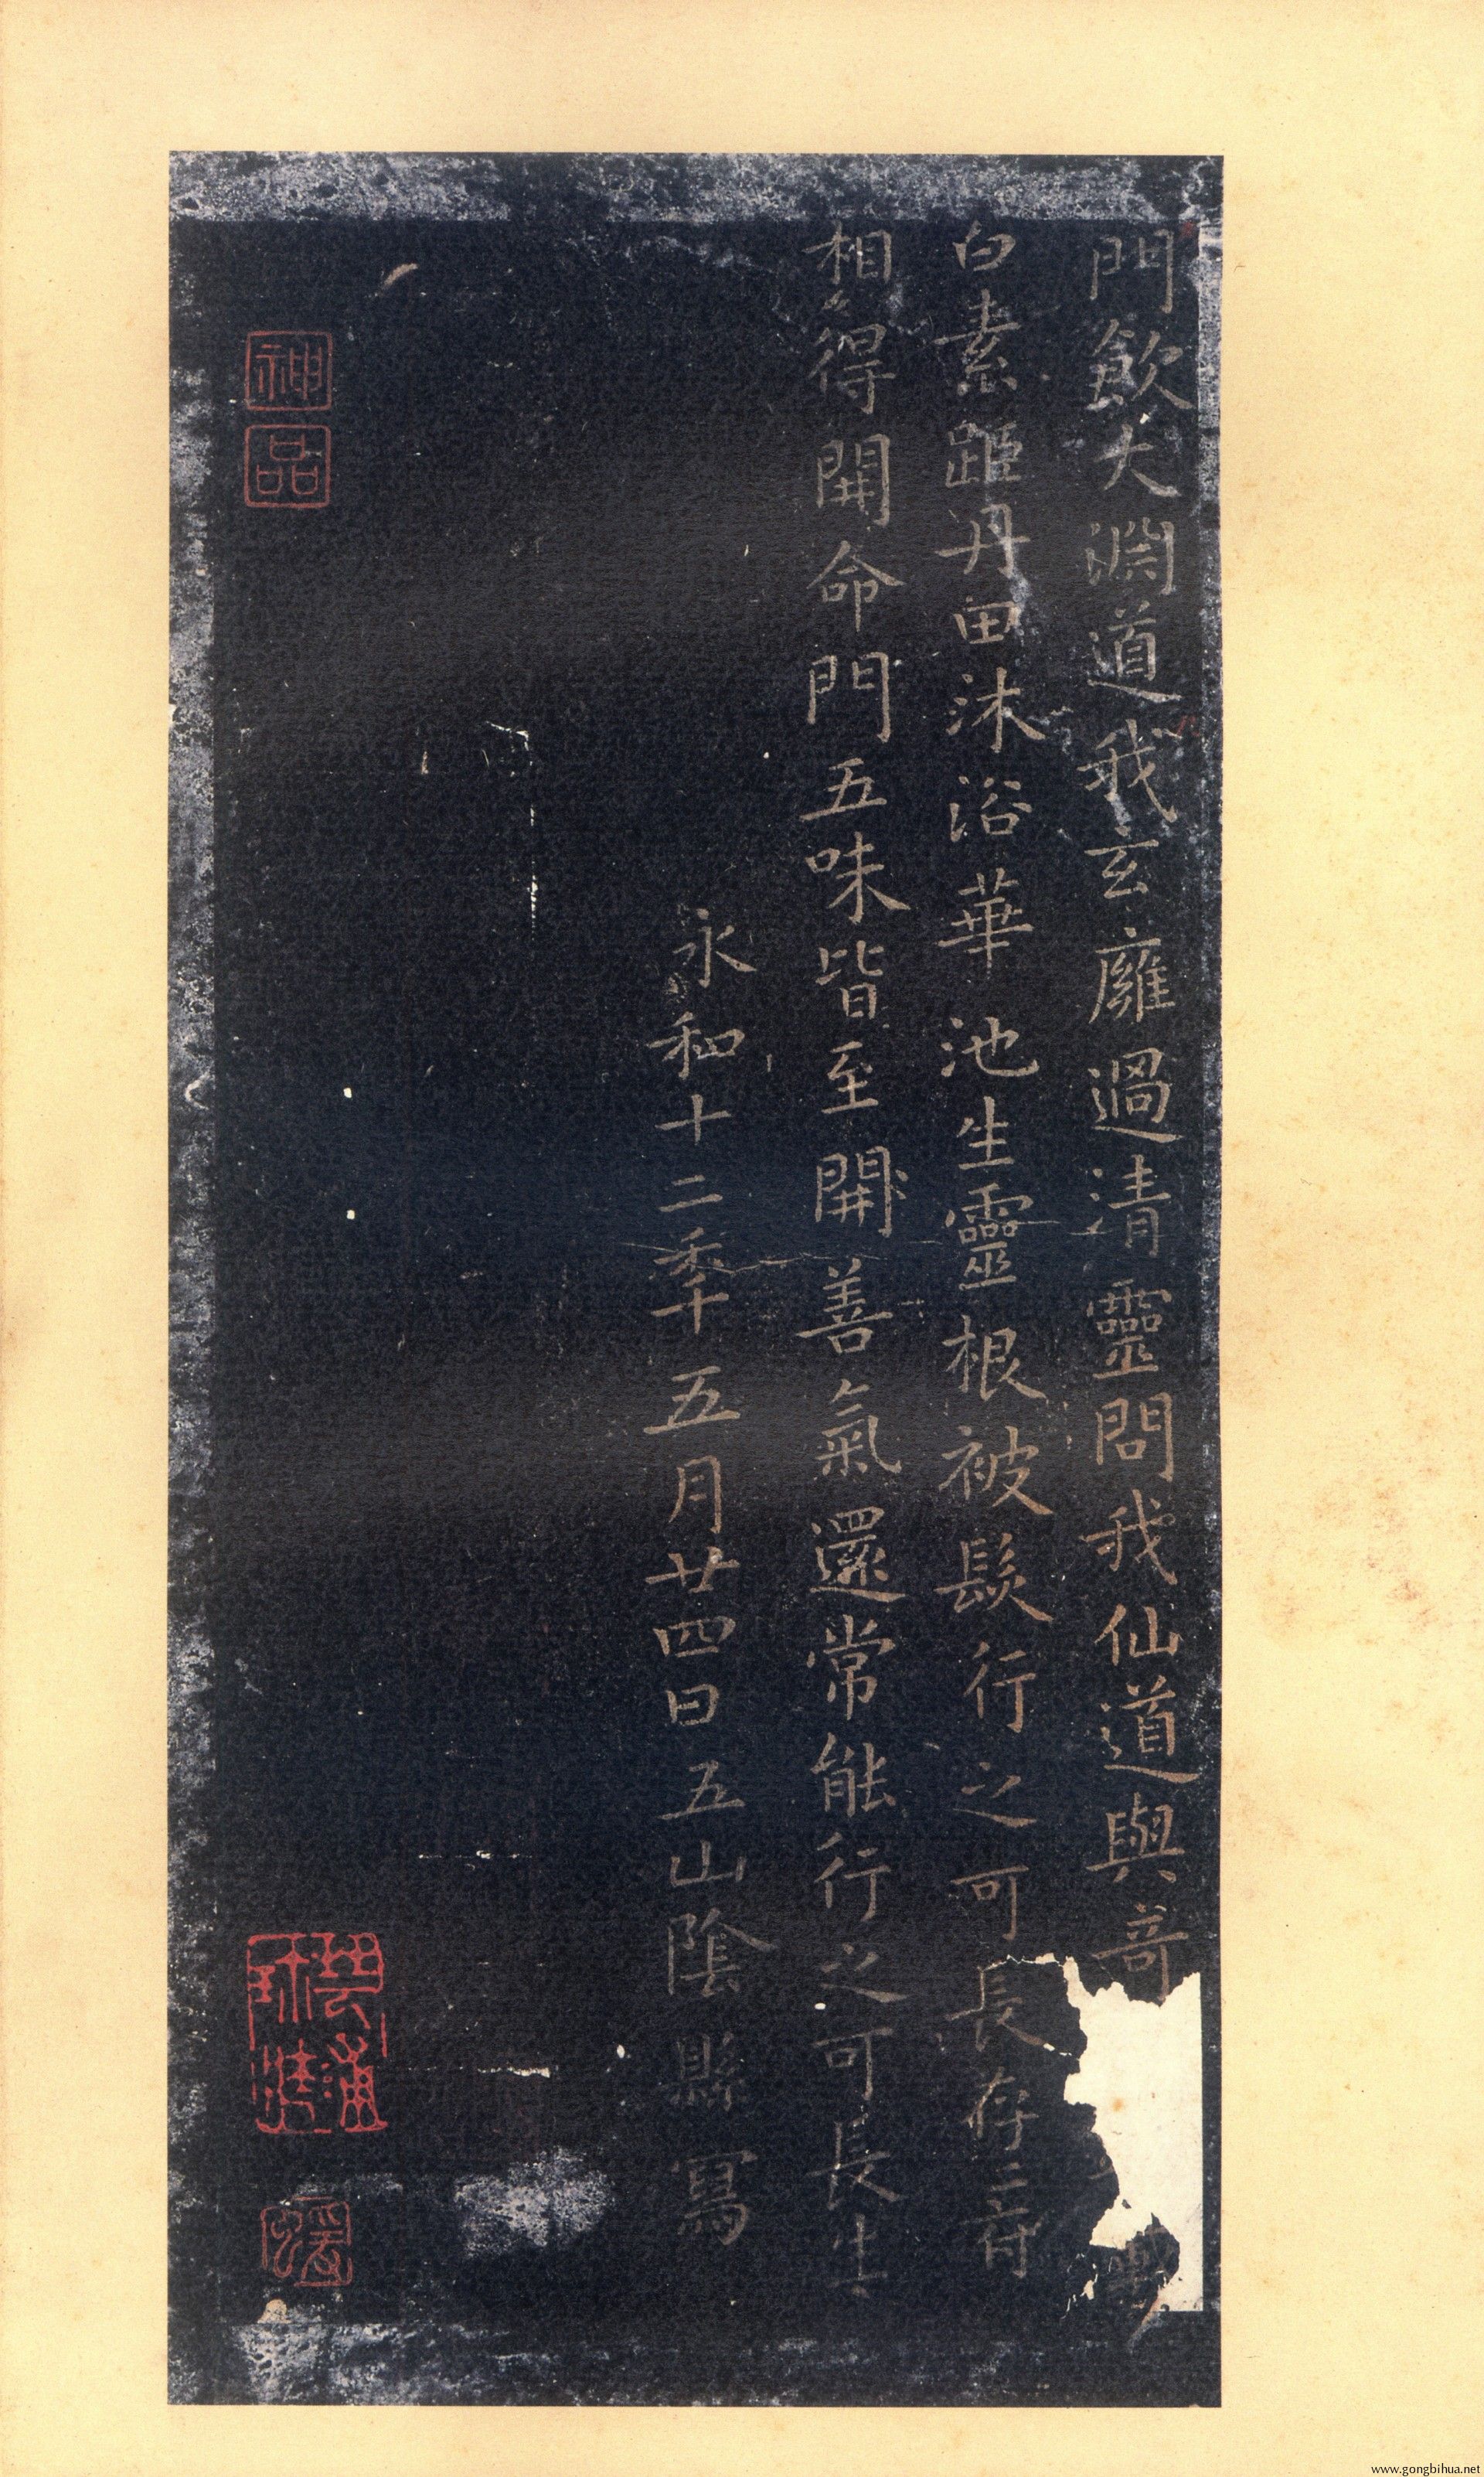 門飲大淵道我玄廱過清靈問我仙道與奇
白素距丹田沐浴華池生靈根被髮行之可長存三府
相得開命門五味皆至開善氣還常能行之可長生
永和十二秊五月廿四日五山陰縣寫
神品
www.gongbihua.net